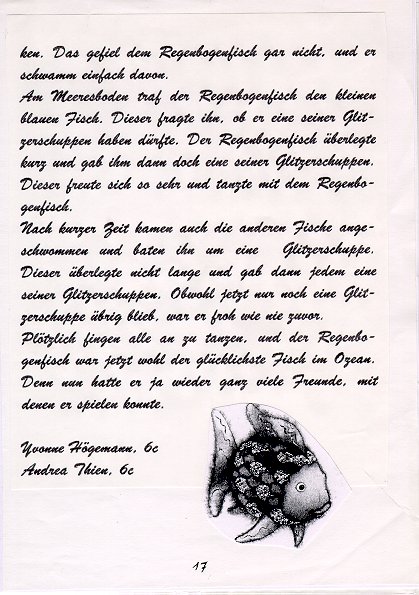 ken. Das gefiel dem Regenbogenfisch gar nicht, und er
schwamm einfach davon.
Am Meeresboden traf der Regenbogenfisch den kleinen
blauen Fisch. Dieser fragte ihn, ob er eine seiner Glit-
zerschuppen haben dürfte. Der Regenbogenfisch überlegte
kurz und gab ihm dann doch eine seiner Glitzerschuppen.
Dieser freute sich so sehr und tanzte mit dem Regenbo-
genfisch.
Nach kurzer Zeit kamen auch die anderen Fische ange-
schwommen und baten ihn um eine Glitzerschuppe.
Dieser überlegte nicht lange und gab dann jedem eine
seiner Glitzerschuppen. Obwohl jetzt nur noch eine Glit-
zerschuppe übrig blieb, war er froh wie nie zuvor.
Plötzlich fingen alle an zu tanzen, und der Regenbo-
genfisch war jetzt wohl der glücklichste Fisch im Ozean.
Denn nun hatte er ja wieder ganz viele Freunde, mit
denen er spielen konnte.
Yvonne Högemann, 6c
Andrea Thien, 6c
17